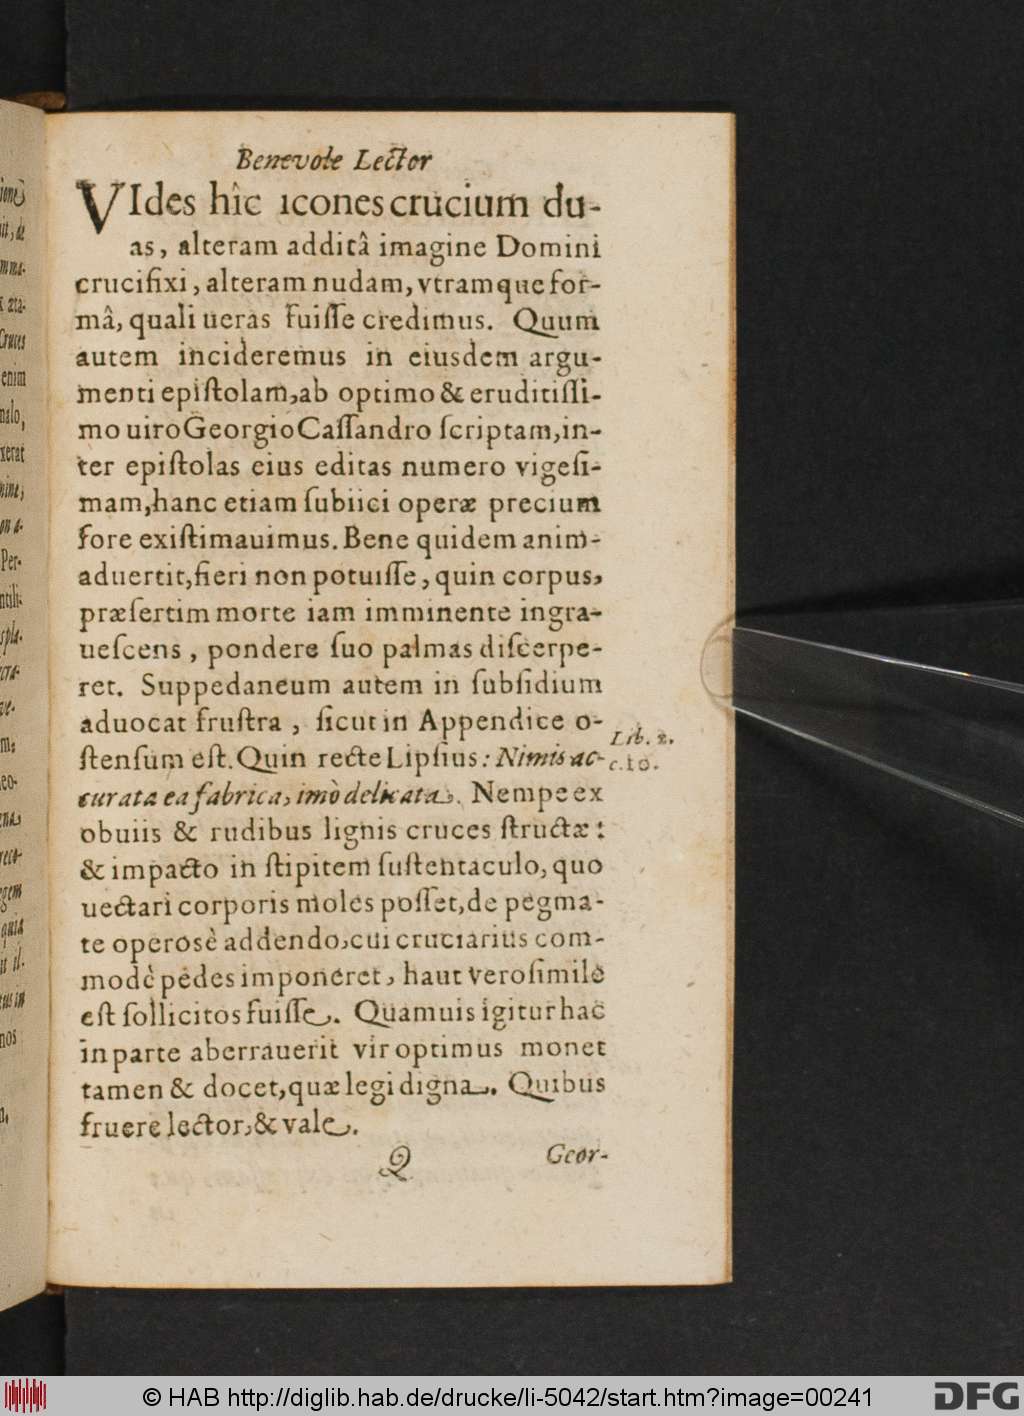 Benevole Lector
VIdes hîc icones crucium du-
as, alteram additâ imagine Domini
crucifixi, alteram nudam, vtramque for-
mâ, quali ueras fuiſſe credimus. Quum
autem incideremus in eiusdem argu-
menti epiſtolam, ab optimo & eruditiſſi-
mo uiro Georgio Caſſandro ſcriptam, in-
ter epiſtolas eius editas numero vigeſi-
mam, hanc etiam ſubiici operæ precium
fore exiſtimauimus. Bene quidem anim-
aduertit, fieri non potuiſſe, quin corpus,
præſertim morte iam imminente ingra-
ueſcens, pondere ſuo palmas diſcerpe-
ret. Suppedaneum autem in ſubſidium
aduocat fruſtra, ſicut in Appendice o-
ſtenſum eſt. Quin recte Lipſius: Nimis ac-
curata ea fabrica, imò delicata. Nempe ex
obuiis & rudibus lignis cruces ſtructæ:
& impacto in ſtipitem ſuſtentaculo, quo
uectari corporis moles poſſet, de pegma-
te operosè addendo, cui cruciarius com-
modè pedes imponeret, haut veroſimile
eſt ſollicitos fuiſſe. Quamuis igitur hac
in parte aberrauerit vir optimus monet
tamen & docet, quæ legi digna. Quibus
fruere lector, & vale.
Lib. 2.
c. 10.
Q
Geor-
© HAB http://diglib.hab.de/drucke/li-5042/start.htm?image=00241
DFG